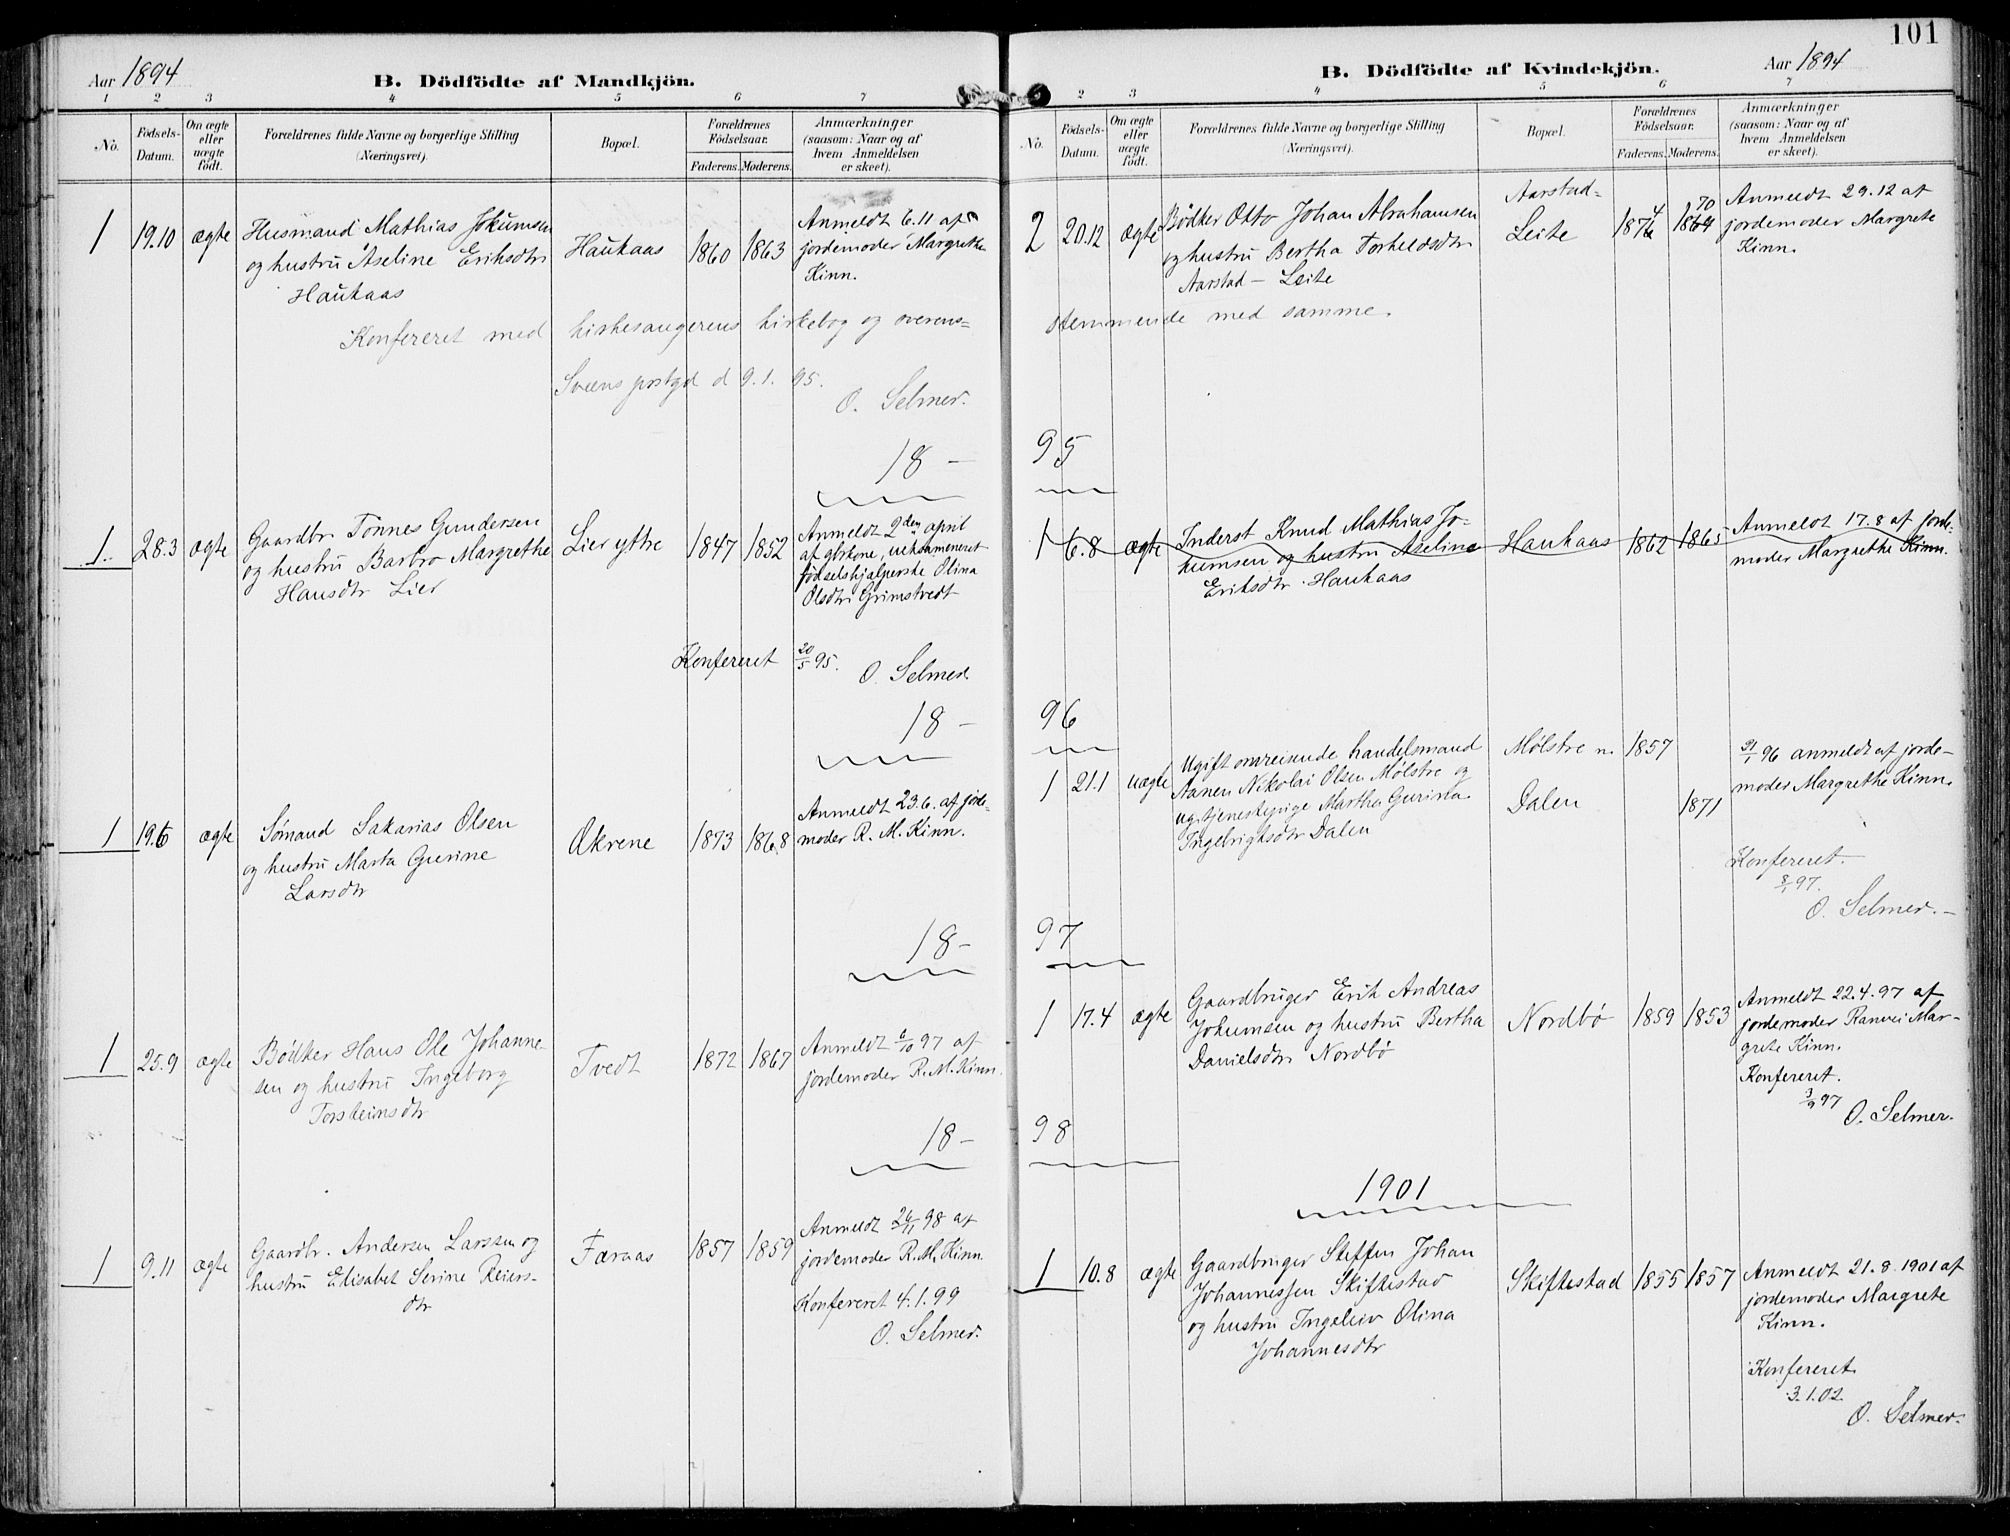 101
Aar 1894
B. Dödfödte af Mandkjön.
1 2 3 4 5 6 7
No.
Födsels-
Datum.
Om ægte
eller
uægte
födt.
Forældrenes fulde Navne og borgerlige Stilling
(Næringsvei).
Bopæl.
Forældrenes
Födselsaar.
Faderens. Moderens.
Anmærkninger
(saasom: Naar og af
hvem Anmeldelsen
er skeet).
1 19.10 ægte Husmand Mathias Jokumsen
og hustru Aseline Eriksdtr
Haukaas
Haukaas 1860 1863
Anmeldt 6.11 af
jordemoder Margrethe
Kinn.
Konfereret med kirkesangerens kirkebog og overens=
Sveens prstgd d 9.1.95.
O. Selmer.
18 –
1. 28.3 ægte Gaardbr. Tønnes Gundersen
og hustru Barbro Margrethe
Hansdtr Lier
Lier ytre 1847 1852
Anmeldt 2den april
af gbrkone, ueksameneret
fødselshjælperske Olina
Olsdtr Grimstvedt
Konfereret 20/5 95. O. Selmer.
18 –
1 19.6 ægte Sømand Sakarias Olsen
og hustru Marta Gurine
Larsdtr
Økrene 1873 1868
Anmeldt 23.6. af jorde-
moder R. M. Kinn.
18 –
1 25.9 ægte Bødker Hans Ole Johanne-
sen og hustru Ingeborg
Torsteinsdtr
Tvedt 1872 1867
Anmeldt 6/10 97 af
jordemoder R. M. Kinn.
18 –
1 9.11 ægte Gaardbr. Andersen Larssen og
hustru Elisabet Serine Reiers-
dtr
Færaas 1857 1859
Anmeldt 26/11 98 af
jordemoder R. M. Kinn.
Konfereret 4.1.99
O. Selmer.
B. Dödfödte af Kvindekjön.
Aar 1894
2 3 4 5 6 7
No.
Födsels-
Datum.
Om ægte
eller
uægte
födt.
Forældrenes fulde Navne og borgerlige Stilling
(Næringsvei).
Bopæl.
Forældrenes
Födselsaar.
Faderens. Moderens.
Anmærkninger
(saasom: Naar og af
hvem Anmeldelsen
er skeet).
2 20.12 ægte Bødker Otto Johan Abrahamsen
og hustru Bertha Torkeldsdtr
Aarstad – Leite
Aarstad-
Leite
1874 1864 70
Anmeldt 29.12 af
jordemoder Margrete
Kinn.
stemmende med samme.
95
1 6.8 ægte Inderst Knud Mathias Jo-
kumsen og hustru Aseline
Eriksdtr. Haukaas
Haukaas 1862 1865
Anmeldt 17.8 af jorde-
moder Margrethe Kinn.
96
1 21.1 uægte Ugift omreisende handelsmand
Aanen Nikolai Olsen Mølstre og
ug. tjenestepige Martha Gurina
Ingebrigtsdtr Dalen
Mølstre n. 1857
Dalen 1871
31/1 96 anmeldt af jorde-
moder Margrethe Kinn.
Konfereret.
8/1 97.
O. Selmer. –
97
1 17.4 ægte Gaardbruger Erik Andreas
Jokumsen og hustru Bertha
Danielsdtr Nordbø
Nordbø 1859 1853
Anmeldt 22.4.97 af
jordemoder Ranvei Mar-
grete Kinn.
Konfereret.
3/9 97
O. Selmer.
98
1901
1 10.8 ægte Gaardbruger Steffen Johan
Johannessen Skiftestad
og hustru Ingeleiv Olina
Johannesdtr
Skiftestad 1855 1857
Anmeldt 21.8 1901 af
jordemoder Margrete
Kinn.
Konfereret
3.1.02.
O. Selmer.